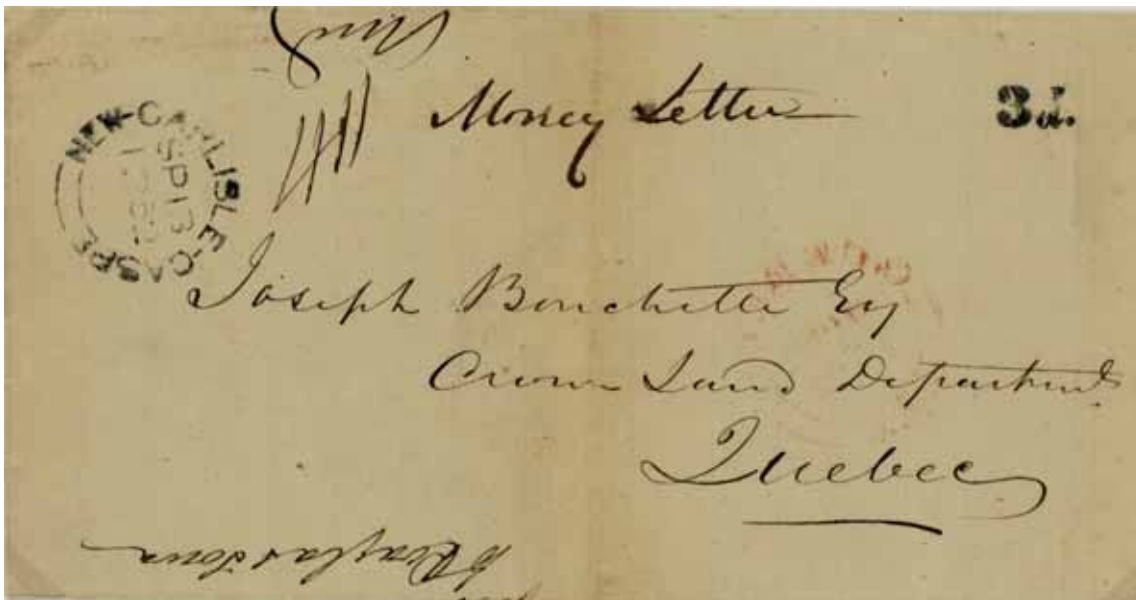 Money Letter
3d.
NEW-CARLISLE-GASPE
SP 13
Joseph Bouchette Esq
Crown Land Department
Quebec